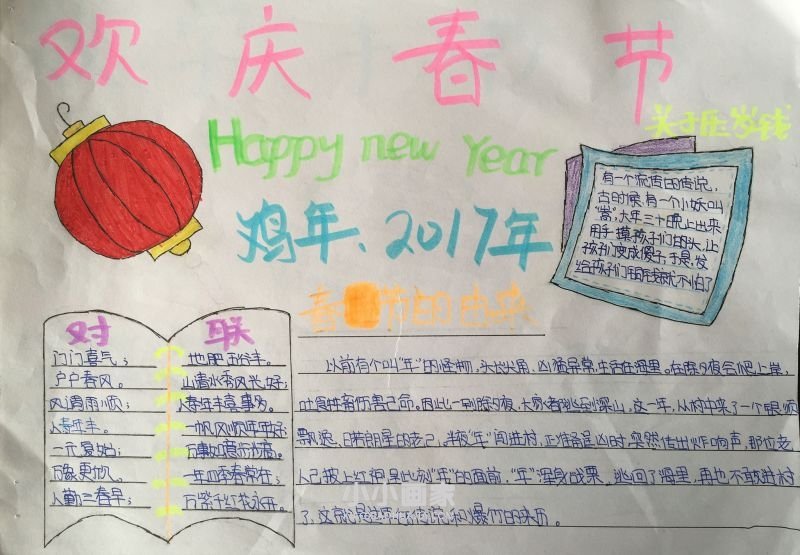 欢庆春节
Happy new Year
关于压岁钱
鸡年、2017年
有一个流传的传说,
古时候,有一个小妖叫
"祟",大年三十晚上出来
用手摸孩子们的头,让
孩子们变成傻子,于是,发
给孩子们压岁钱就不怕了
春节的由来
对联
门门喜气;
户户春风。
风调雨顺;
人寿年丰。
一元复始;
万象更
人勤三春早;
地肥
山清水秀风光好;
人寿年丰喜事多。
一帆风顺年年好;
万事如意
一年四季春常在;
万紫千红花永开。
以前有个叫"年"的怪物,头长尖角,凶猛异常,生活在海里。在除夕夜会爬上岸,
吞食牲畜伤害 命。因此一到除夕夜,大家都 到深山,这一年,从村中来了一个银须
飘逸,目若朗星的老 ,半夜"年"闯进村,正准备 凶时,突然传出炸响声,那位老
人已披上红袍 "年"的面前,"年"浑身战栗,逃回了海里,再也不敢进村
了,这就是 传说,和爆竹的来历。
小小画家